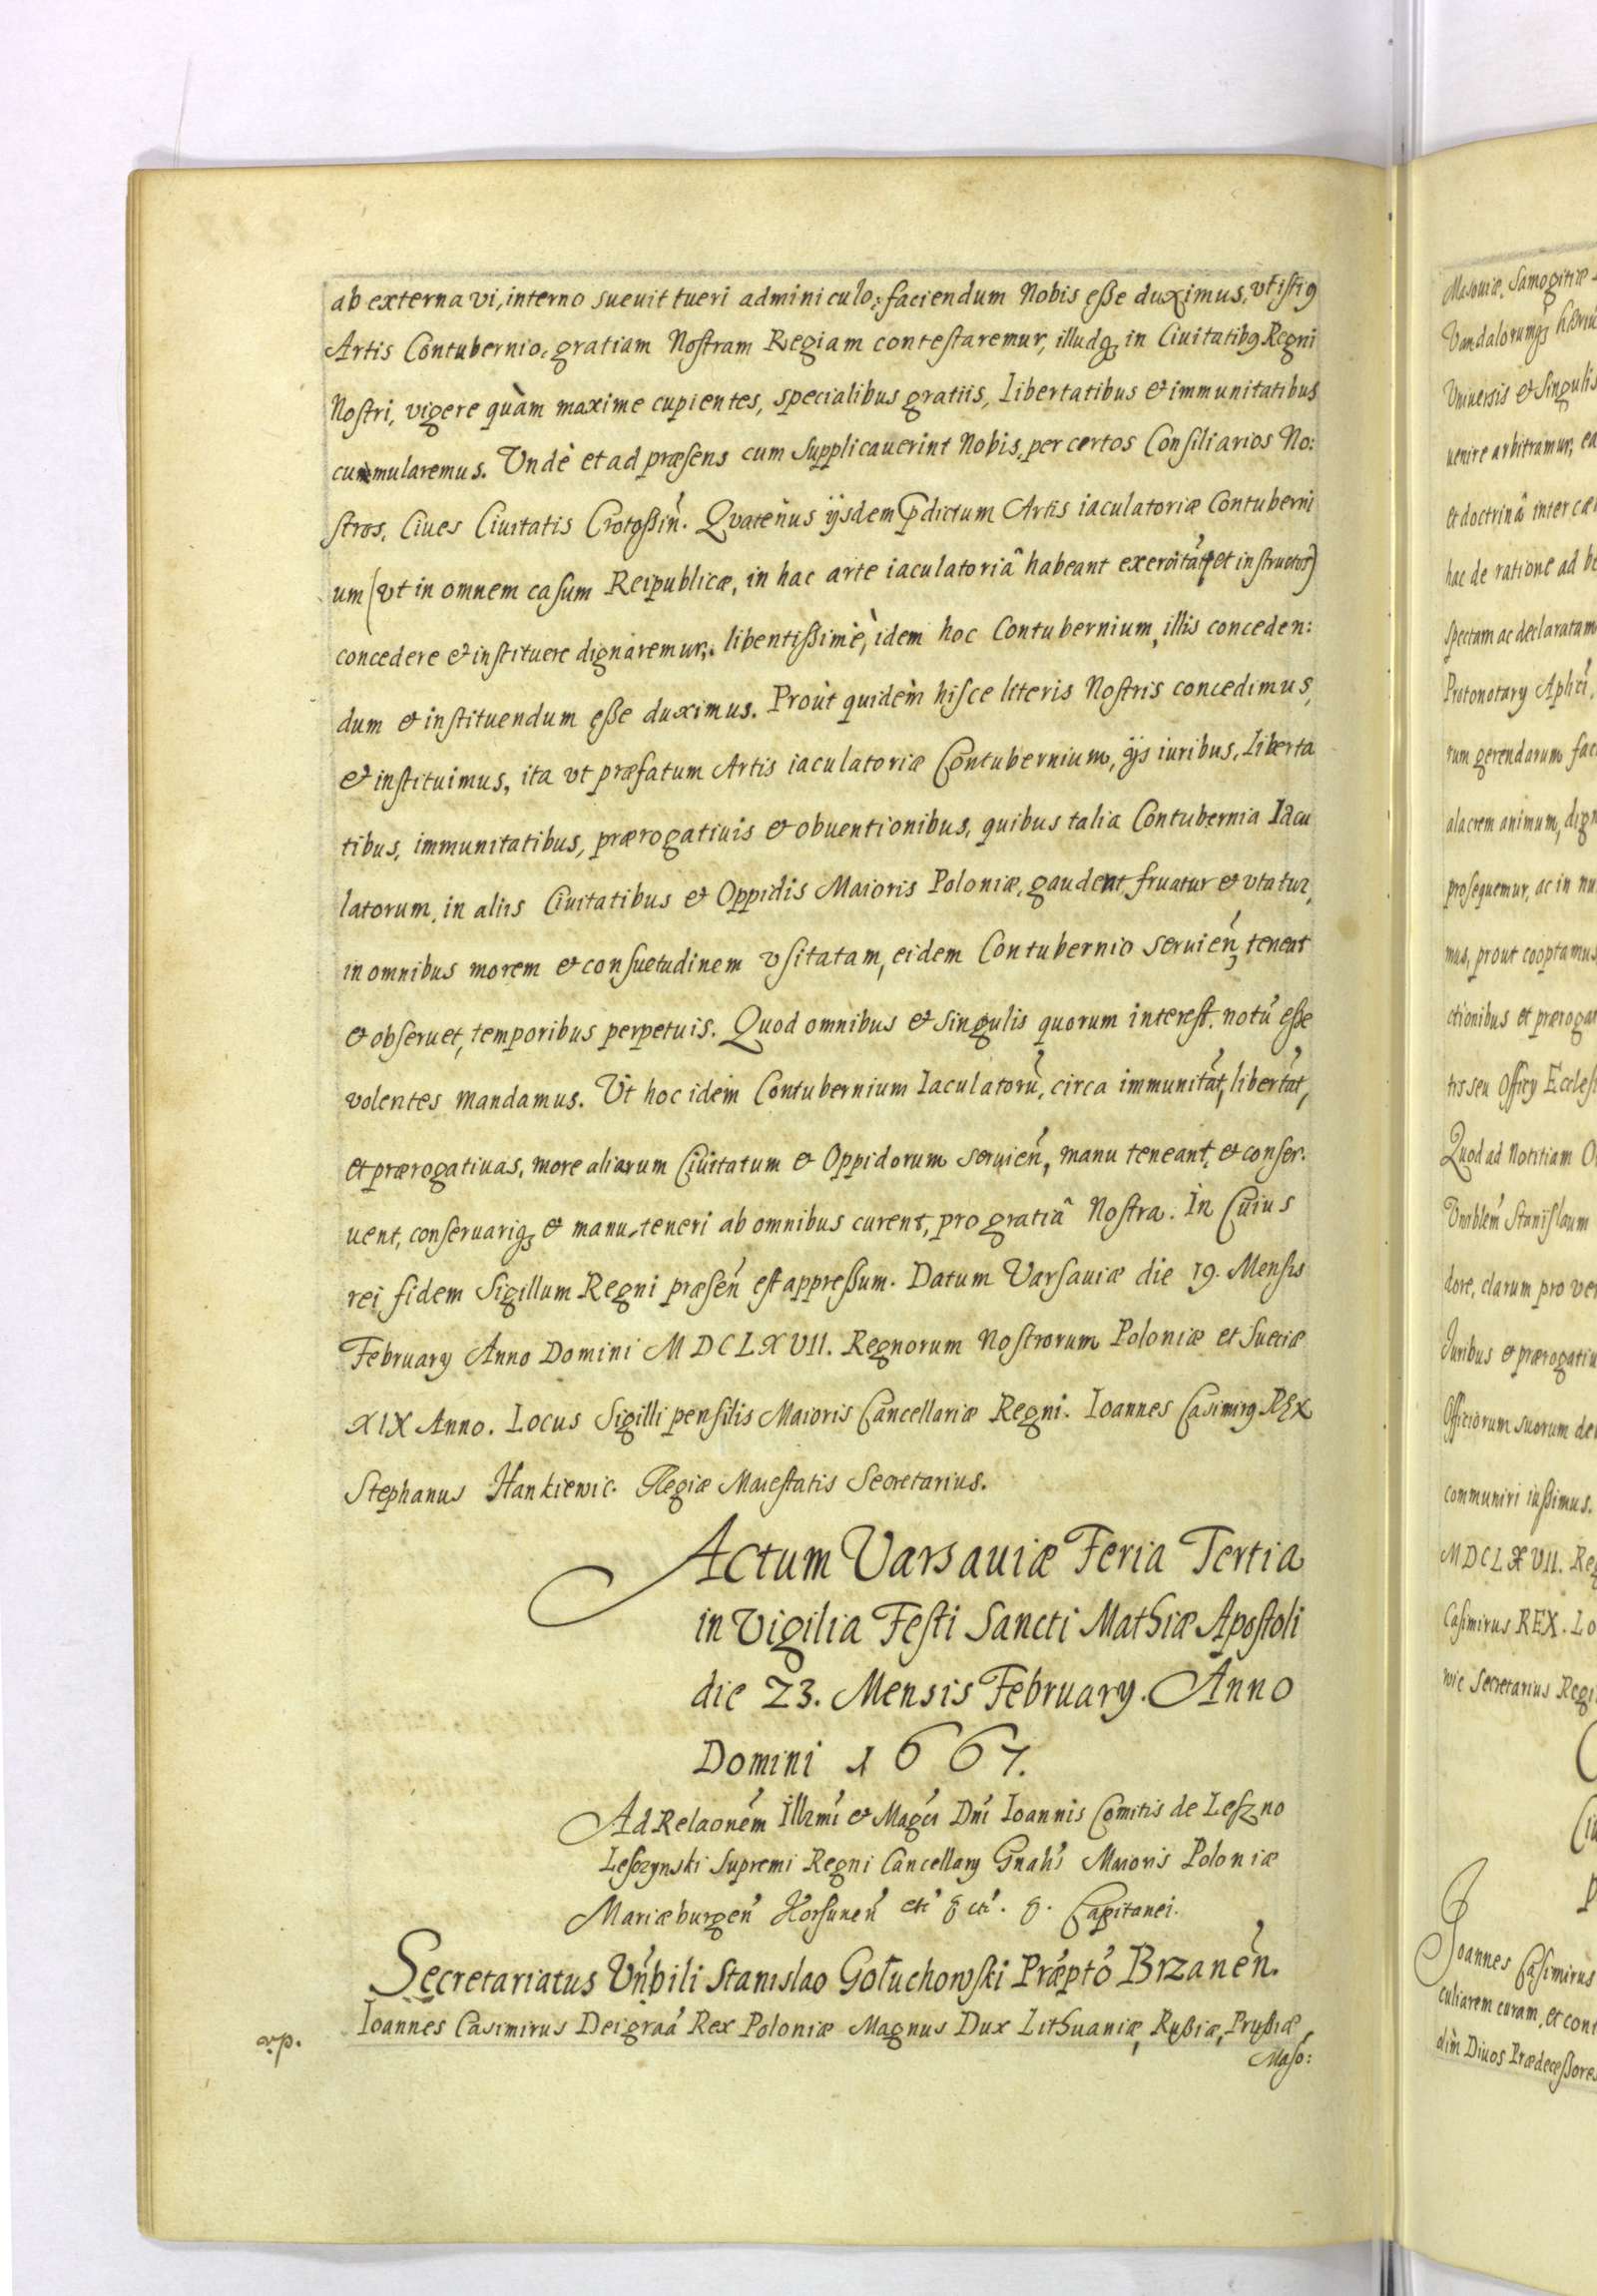 ab externa vi, interno sueuit tueri adminiculo: faciendum Nobis eße duximus, vt istiꝰ
Artis Contubernio, gratiam Nostram Regiam contestaremur, illudqꝫ in Ciuitatibꝰ Regni
Nostri, vigere quàm maxime cupientes, specialibus gratiis, libertatibus et immunitatibus
cummularemus. Undè et ad præsens cum supplicauerint Nobis, per certos Consiliarios No:
stros, Ciues Ciuitatis Crotoßiń. Qvatenus ÿsdem p̄dictum Artis iaculatoriæ Contuberni
um (vt in omnem casum Reipublicæ, in hac arte iaculatoriâ habeant exercitat, et instructos)
concedere et instituere dignaremur. libentißimè, idem hoc Contubernium, illis conceden:
dum et instituendum eße duximus. Prout quidem hisce literis Nostris concedimus,
et instituimus, ita vt præfatum Artis iaculatoriæ Contubernium, ÿs iuribus, liberta
tibus, immunitatibus, prærogatiuis et obuentionibus, quibus talia Contubernia Iacu
latorum, in aliis Ciuitatibus et Oppidis Maioris Poloniæ, gaudent, fruatur et vtatur,
in omnibus morem et consuetudinem vsitatam, eidem Contubernio seruień, teneat
et obseruet, temporibus perpetuis. Quod omnibus et singulis quorum interest. notū eße
volentes mandamus. Ut hoc idem Contubernium Iaculatorū, circa immunitat́, libertat́,
et prærogatiuas, more aliarum Ciuitatum et Oppidorum seruień, manu teneant, et conser.
uent, conseruariqꝫ et manu teneri ab omnibus curent, pro gratiâ Nostra. In Cuius
rei fidem Sigillum Regni præseń est appreßum. Datum Varsauiæ die 19. Mensis
Februarÿ Anno Domini MDCLXVII. Regnorum Nostrorum Poloniæ et Sueciæ
XIX Anno. Locus Sigilli pensilis Maioris Cancellariæ Regni. Ioannes Casimirꝰ REX
Stephanus Hankiewic. Regiæ Maiestatis Secretarius.
Actum Varsauiæ Feria Tertia
in Vigilia Festi Sancti Mathiæ Apostoli
die 23. Mensis Februarÿ. Anno
Domini 1667.
Ad Relaoném Illmi et Magci Dni Ioannis Comitis de Leszno
Leszczynski Supremi Regni Cancellarÿ Gnalis Maioris Poloniæ
Mariæburgeń Korsuneń Capitanei.
Secretariatus Vnbili Stanislao Gołuchowski Præpto Brzaneń.
Ioannes Casimirus Dei graa Rex Poloniæ Magnus Dux Lithuaniæ, Rußiæ, Prußiæ,
Maso:
Masouiæ, Samogitiæ
Vandalorumqꝫ
Vniuersis et Singulis
uenire arbitramur, ea
et doctrinâ inter
hac de ratione ad
spectam ac declaratam
Protonotarÿ
rum gerendarum
alacrem animum,
prosequemur, ac in
mus, prout cooptamus
ctionibus et
tis seu Officÿ
Quod ad Notitiam
Vnblem Stanislaum
dore, clarum pro
Iuribus et
Officiorum suorum
communiri iußimus.
MDCLXVII.
Casimirus REX.
wic Secretarius
Ioannes Casimirus
culiarem curam, et
dìm Diuos Prædeceßores